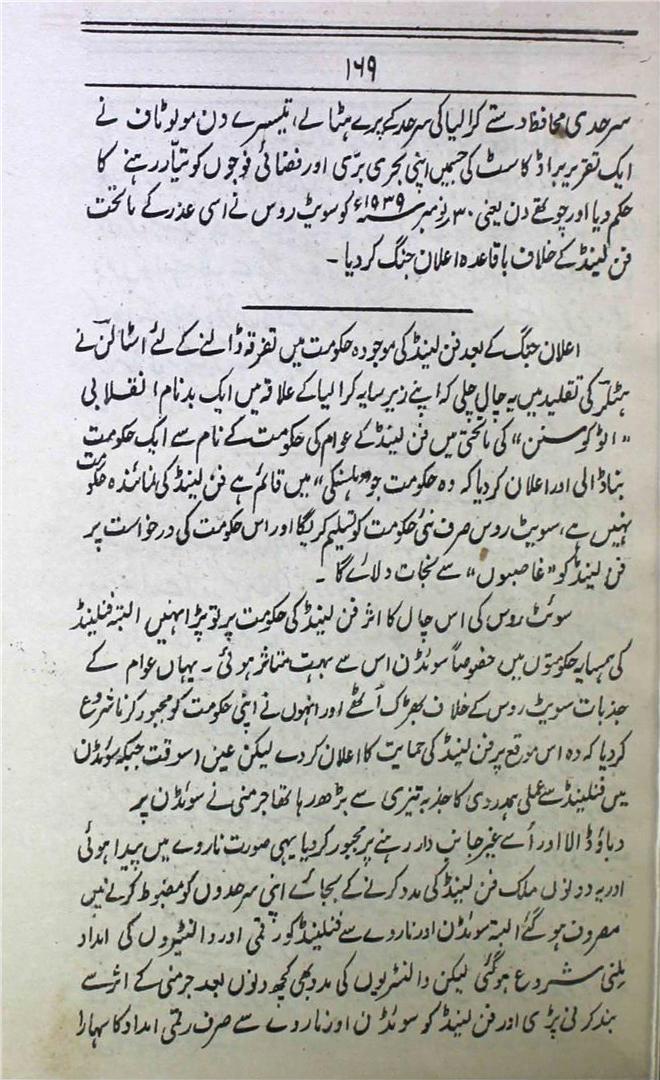 ۱۶۹
سرحدی محافظ دستے کرالیا کی سرحد کے پرے ہٹالے، تیسرے دن مولوٹاف نے
ایک تقریر براڈ کاسٹ کی جسمیں اپنی بحری بری اور فضائی فوجوں کو تیار رہنے کا
حکم دیا اور چوتھے دن یعنی ۳۰ نومبر ۱۹۳۹ء کو سویٹ روس نے اسی عذر کے ماتحت
فن لینڈ کے خلاف باقاعدہ اعلان جنگ کر دیا۔
اعلان جنگ کے بعد فن لینڈ کی موجودہ حکومت میں تفرقہ ڈالنے کے لئے اسٹالن نے
ہٹلر کی تقلید میں یہ چال چلی کہ اپنے زیر سایہ کرالیا کے علاقہ میں ایک بدنام انقلابی
”اوٹو کوسنن“ کی ماتحتی میں فن لینڈ کے عوام کی حکومت کے نام سے ایک حکومت
بنا ڈالی اور اعلان کر دیا کہ وہ حکومت جو ”ہلسنکی“ میں قائم ہے فن لینڈ کی نمائندہ حکومت
نہیں ہے، سویٹ روس صرف نئی حکومت کو تسلیم کریگا اور اس حکومت کی درخواست پر
فن لینڈ کو ”غاصبوں“ سے نجات دلائے گا۔
سوئٹ روس کی اس چال کا اثر فن لینڈ کی حکومت پر تو پڑا نہیں البتہ فنلینڈ
کی ہمسایہ حکومتوں میں خصوصاً سوئڈن اس سے بہت متاثر ہوئی۔ یہاں عوام کے
جذبات سویٹ روس کے خلاف بھڑک اُٹھے اور انہوں نے اپنی حکومت کو مجبور کرنا شروع
کر دیا کہ وہ اس موقع پر فن لینڈ کی حمایت کا اعلان کر دے لیکن عین اسوقت جبکہ سوئڈن
میں فنلینڈ سے عملی ہمدردی کا جذبہ تیزی سے بڑھ رہا تھا جرمنی نے سوئڈن پر
دباؤ ڈالا اور اُسے غیر جانب دار رہنے پر مجبور کر دیا یہی صورت ناروے میں پیدا ہوئی
اور یہ دونوں ملک فن لینڈ کی مدد کرنے کے بجائے اپنی سرحدوں کو مضبوط کرنے میں
مصروف ہو گئے البتہ سوئڈن اور ناروے سے فنلینڈ کو رقمی اور والنٹیروں کی امداد
ملنی شروع ہو گئی لیکن والنٹریوں کی مدد بھی کچھ دنوں بعد جرمنی کے اثر سے
بند کرنی پڑی اور فن لینڈ کو سوئڈن اور ناروے سے صرف رقمی امداد کا سہارا